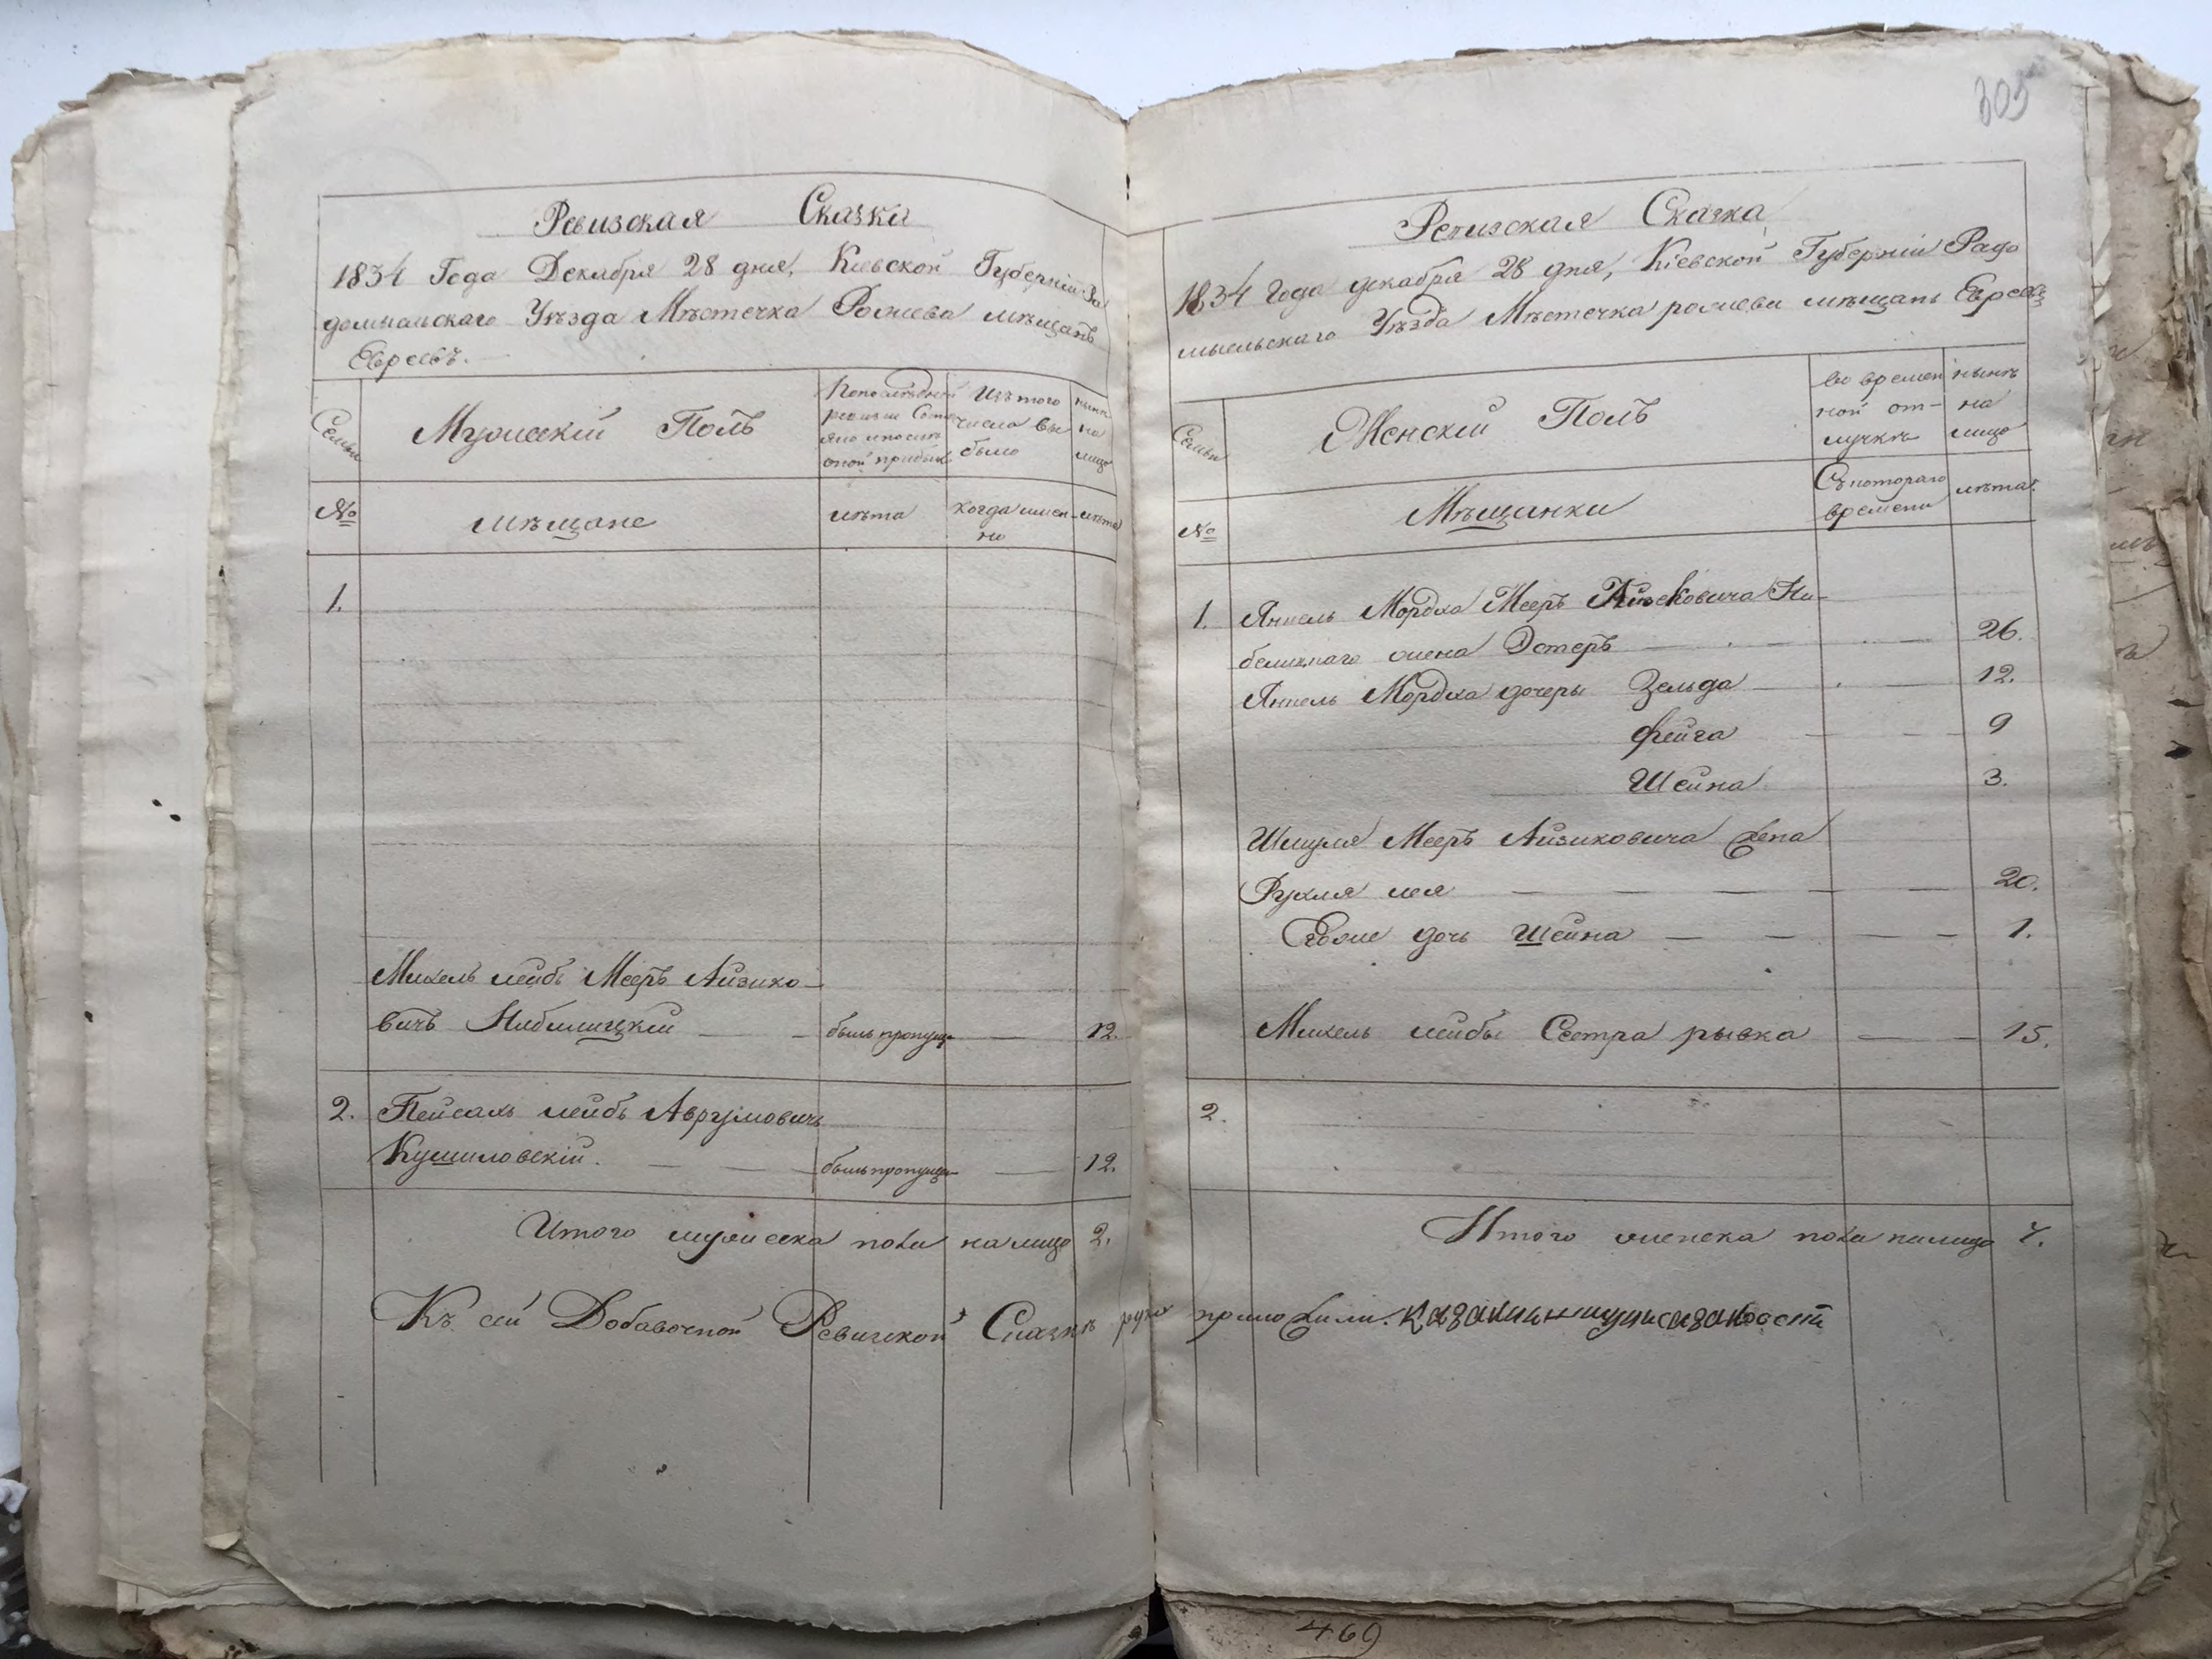 305
Ревизская Сказка
1834 Года Декабря 28 дня, Киевской Губерніи Ра
домысльскаго Уѣзда Мѣстечка Рожева мѣщанъ
Евреевъ.
Семьи
Мужескій Полъ
По последней
ревизіи Состо
яло и после
оной прибыло
Изъ того
числа вы
было
ныне
на
лицо
№
мѣщане
лѣта
когда имен-
но
лѣта
1.
Михель лейбъ Мееръ Айзико-
вичъ Нибилицкій
былъ пропущ.
12.
2. Пейсахъ лейбъ Аврумовичъ
Кушиловскій.
былъ пропущ.
12.
Итого мужеска пола на лицо 2.
Къ сей Добавочной Ревизской Сказкѣ руки приложили.
Ревизская Сказка
1834 Года декабря 28 дня, Кіевской Губерніи Радо
мысльскаго Уѣзда Мѣстечка рожева мѣщанъ Евреевъ
Семьи
Женскій Полъ
во времен
ной от-
лучкѣ
нынѣ
на
лицо
№
Мѣщанки
Съ котораго
времени
лѣта.
1. Янкель Мордха Мееръ Айзековича Ни-
белицкаго жена Эстеръ 26.
Янкель Мордха дочери Зельда 12.
Фейга 9
Шейна 3.
Шмуля Мееръ Айзиковича жена
Рухля лея 20.
Егоже дочь Шейна 1.
Михель лейбы Сестра рывка 15.
2.
Итого женска пола налицо 7.
469